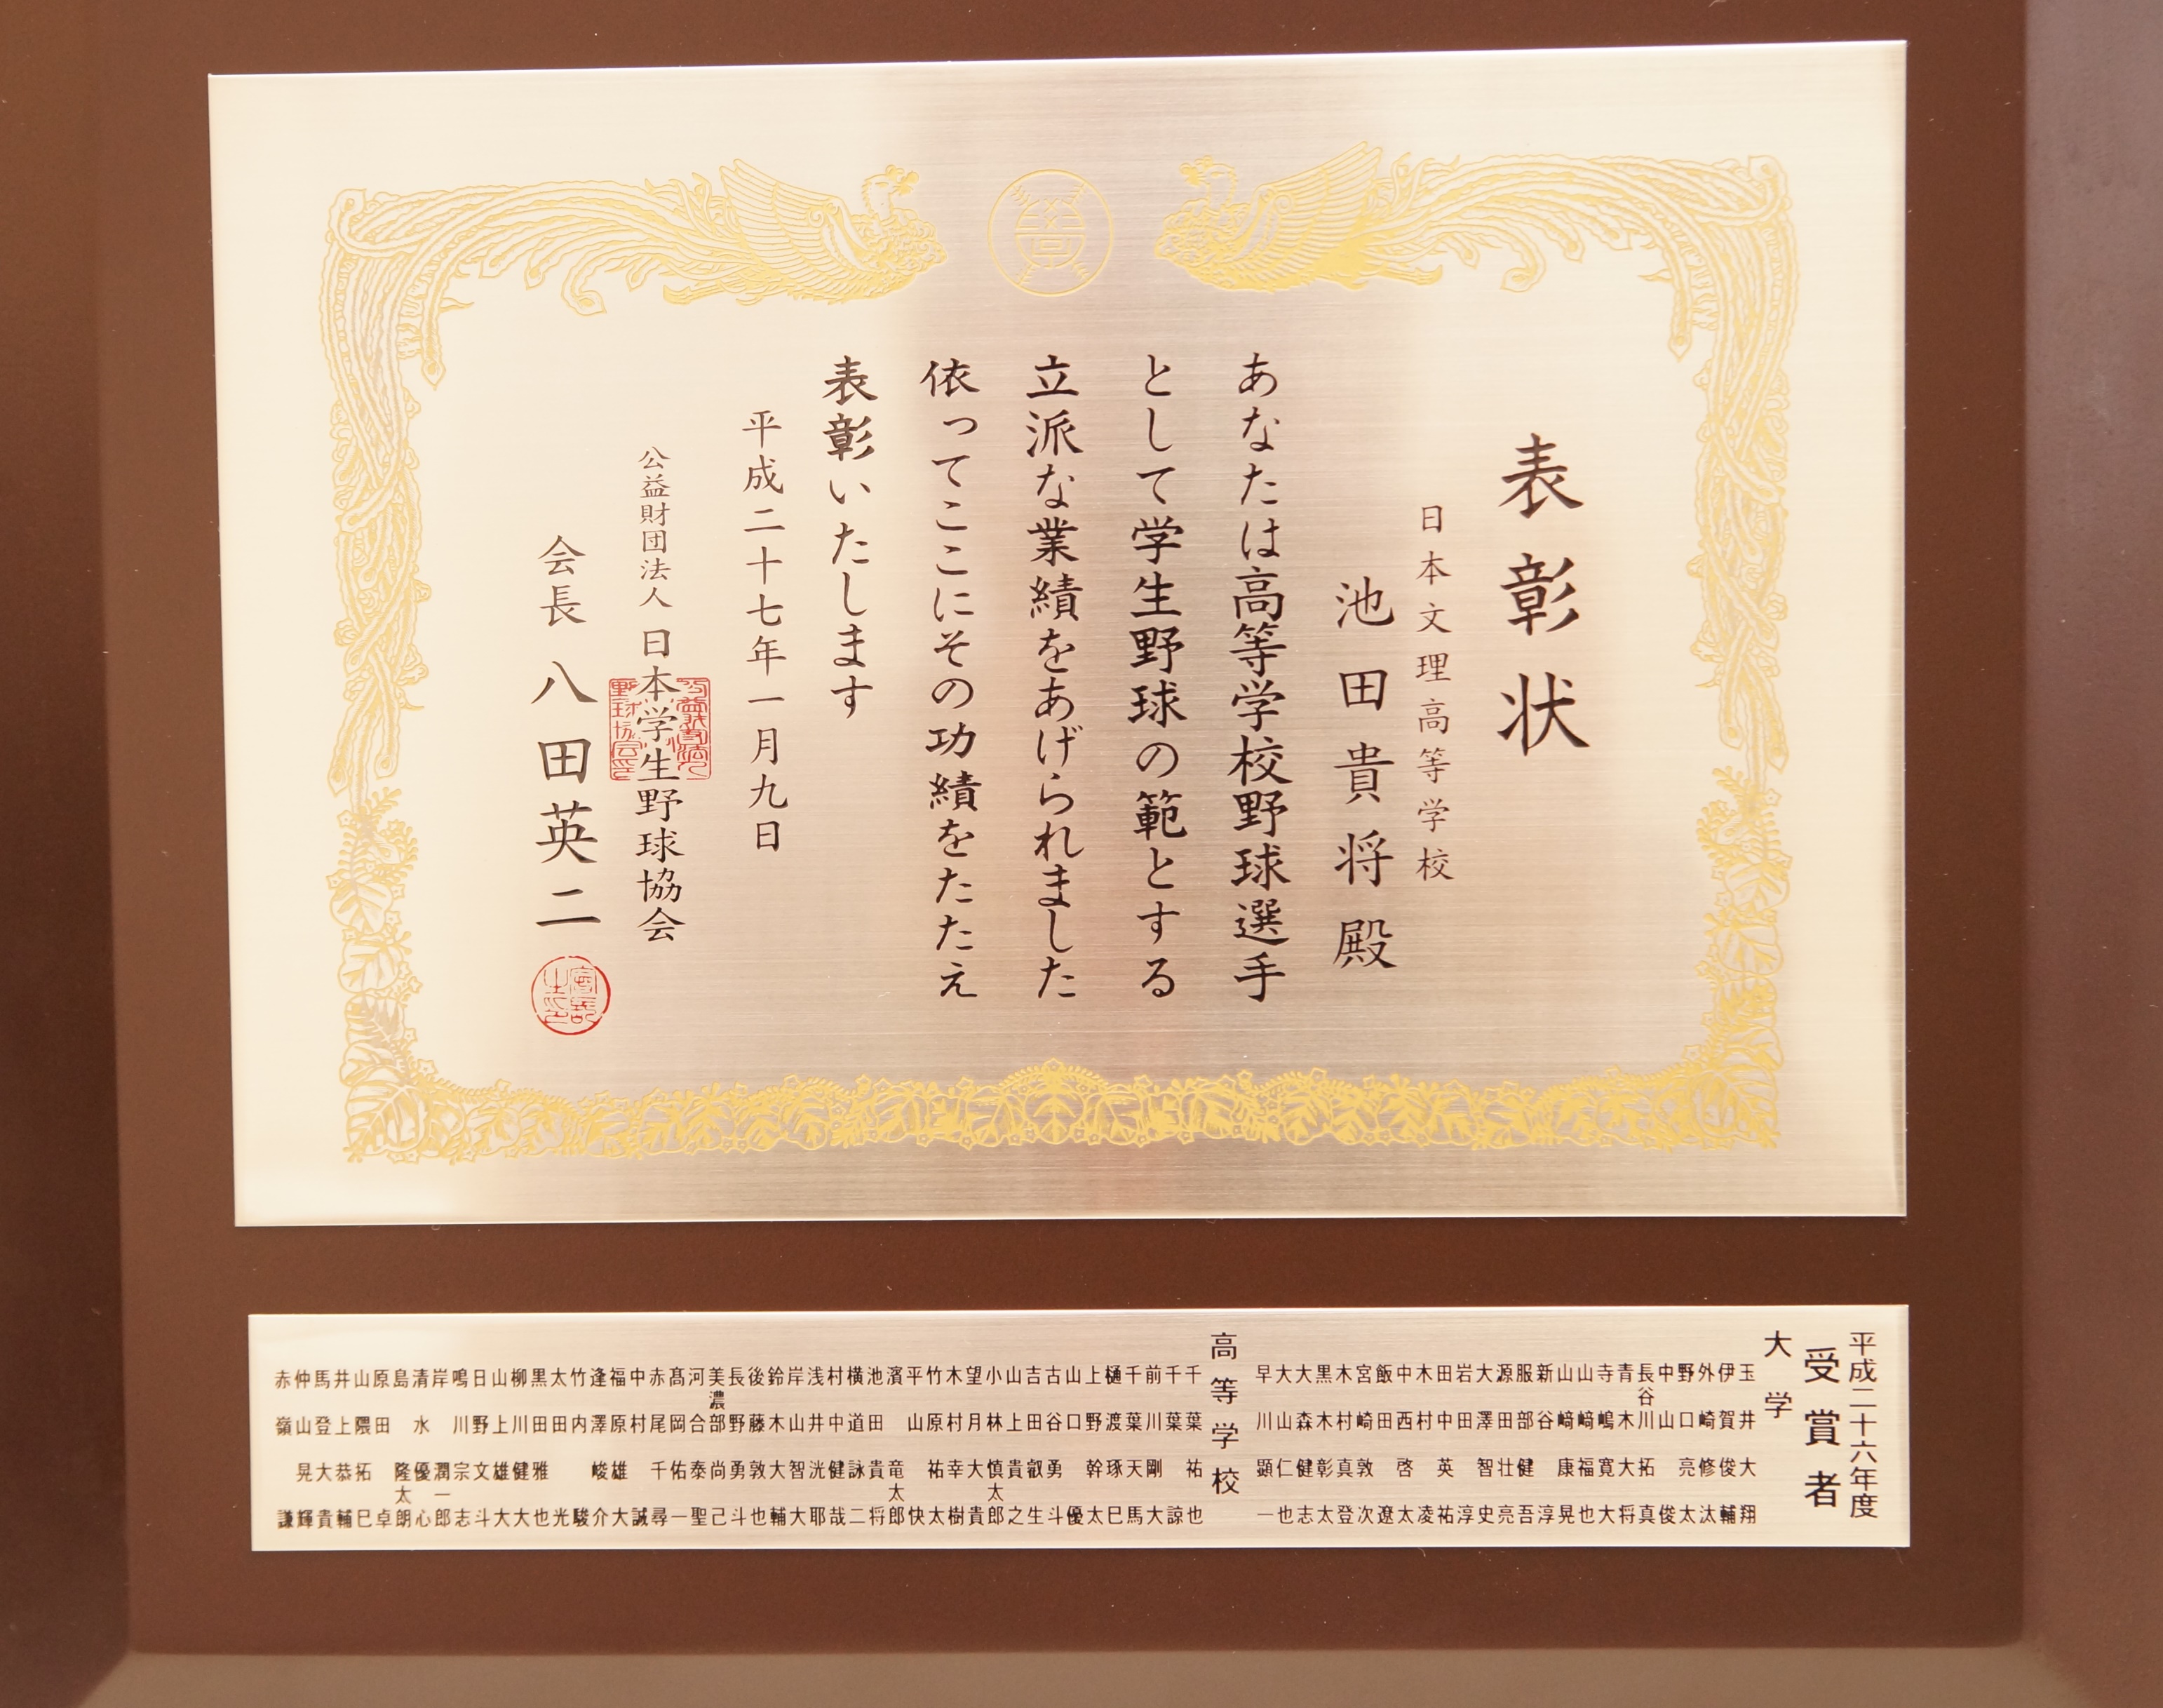 表彰状
日本文理高等学校
池田貴将殿
あなたは高等学校野球選手
として学生野球の範とする
立派な業績をあげられました
依ってここにその功績をたたえ
表彰いたします
平成二十七年一月九日
公益財団法人 日本学生野球協会
会長 八田英二
平成二十六年度
受賞者
大学
玉井大翔
伊賀俊輔
外崎修汰
野口亮太
中山俊
長谷川拓真
青木大将
寺嶋寛大
山﨑福也
山﨑康晃
新谷淳
服部健吾
源田壮亮
大澤智史
岩田淳
田中英祐
木村凌
中西啓太
飯田遼
宮崎敦次
木村真登
黒木彰太
大森健志
大山仁也
早川顕一
高等学校
千葉祐也
千葉諒
前川剛大
千葉天馬
樋渡琢巳
上野幹太
山口優
古谷勇斗
吉田叡生
山上貴之
小林慎太郎
望月大貴
木村幸樹
竹原祐太
平山快
濱竜太郎
池田貴将
横道詠二
村中健哉
浅井洸耶
岸山智大
鈴木大輔
後藤敦也
長野勇斗
美濃部尚己
河合泰聖
髙岡佑一
赤尾千尋
中村誠
福原雄大
逢澤峻介
竹内駿
太田光
黒田雅也
柳川健大
山上雄大
日野文斗
鳴川宗志
岸潤一郎
清水優心
島隆太朗
原田卓
山隈拓巳
井上恭輔
馬登大貴
仲山晃輝
赤嶺謙